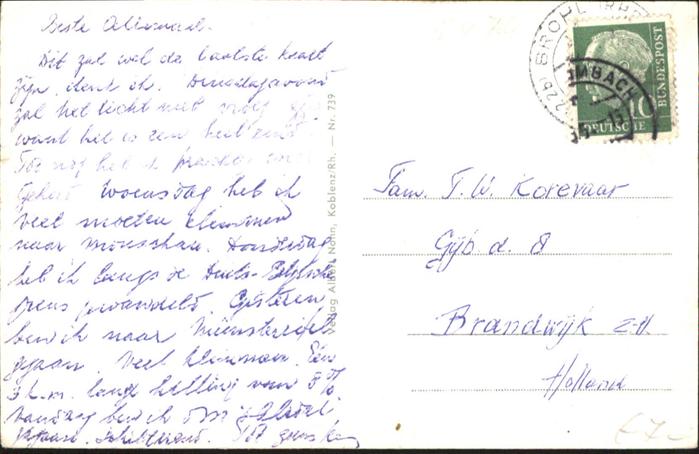 Beste Allemaal.
Dit zal wel de laatste kaart
zijn, denk ik.
zal het licht niet vroeg
want het is een heel eind
Tot nog heb ik prachtig weer
gehad. Woensdag heb ik
veel moeten klimmen
naar Monschau. Donderdag
heb ik langs de Duits-Belgische
grens gewandeld. Gisteren
ben ik naar Münstereifel
gegaan. Veel klimmen. Een
3 k.m. lange helling van
Vandaag ben ik
gegaan. Schitterend. Tot
Verlag Nohn, Koblenz/Rh. — Nr. 739
BROHL
DEUTSCHE
BUNDESPOST
10
Fam. T.W. Korevaar
Gijb d. 8
Brandwijk Z-H.
Holland
€7-